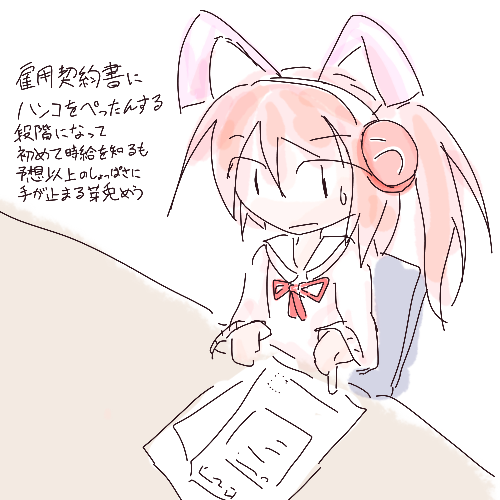 雇用契約書に
ハンコをぺったんする
段階になって
初めて時給を知るも
予想以上のしょっぱさに
手が止まる芽兎めう